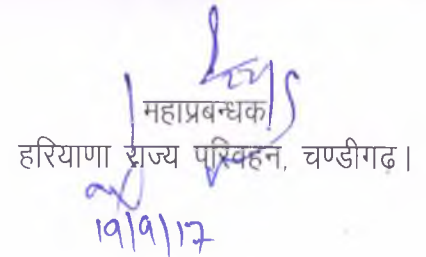 महाप्रबन्धक
हरियाणा राज्य परिवहन, चण्डीगढ़।
19/9/17